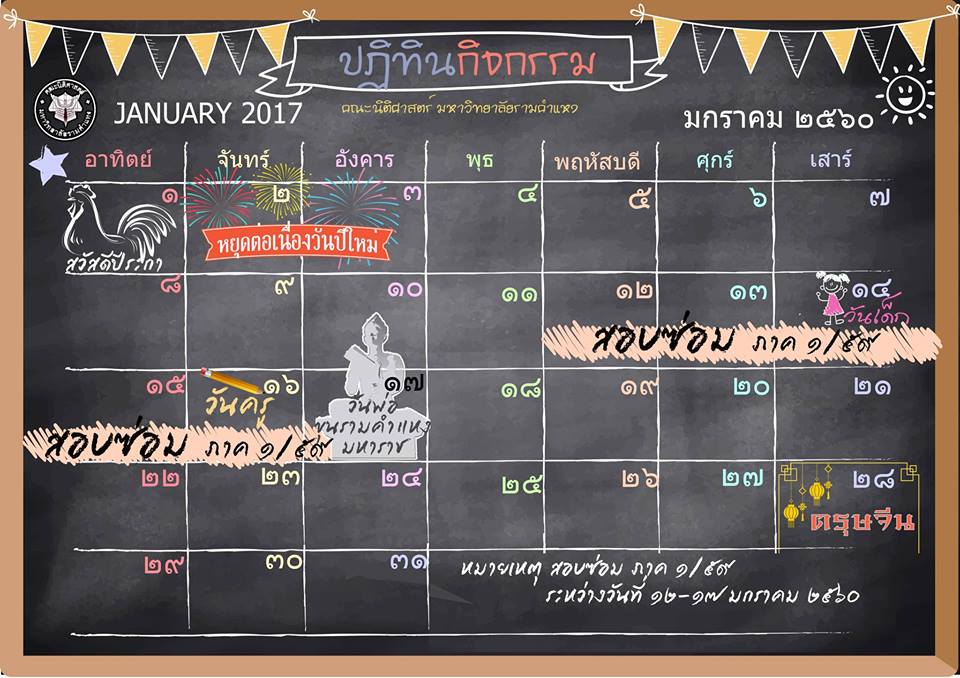 ปฏิทินกิจกรรม
คณะนิติศาสตร์ มหาวิทยาลัยรามคำแหง
JANUARY 2017
มกราคม ๒๕๖๐
อาทิตย์ จันทร์ อังคาร พุธ พฤหัสบดี ศุกร์ เสาร์
๑ ๒ ๓ ๔ ๕ ๖ ๗
หยุดต่อเนื่องวันปีใหม่
สวัสดีประกา
๘ ๙ ๑๐ ๑๑ ๑๒ ๑๓ ๑๔
วันเด็ก
สอบซ่อม ภาค ๑/๕๙
๑๕ ๑๖ ๑๗ ๑๘ ๑๙ ๒๐ ๒๑
วันครู
วันพ่อ
ขุนรามคำแหง
มหาราช
สอบซ่อม ภาค ๑/๕๙
๒๒ ๒๓ ๒๔ ๒๕ ๒๖ ๒๗ ๒๘
ตรุษจีน
๒๙ ๓๐ ๓๑
หมายเหตุ สอบซ่อม ภาค ๑/๕๙
ระหว่างวันที่ ๑๒-๑๗ มกราคม ๒๕๖๐